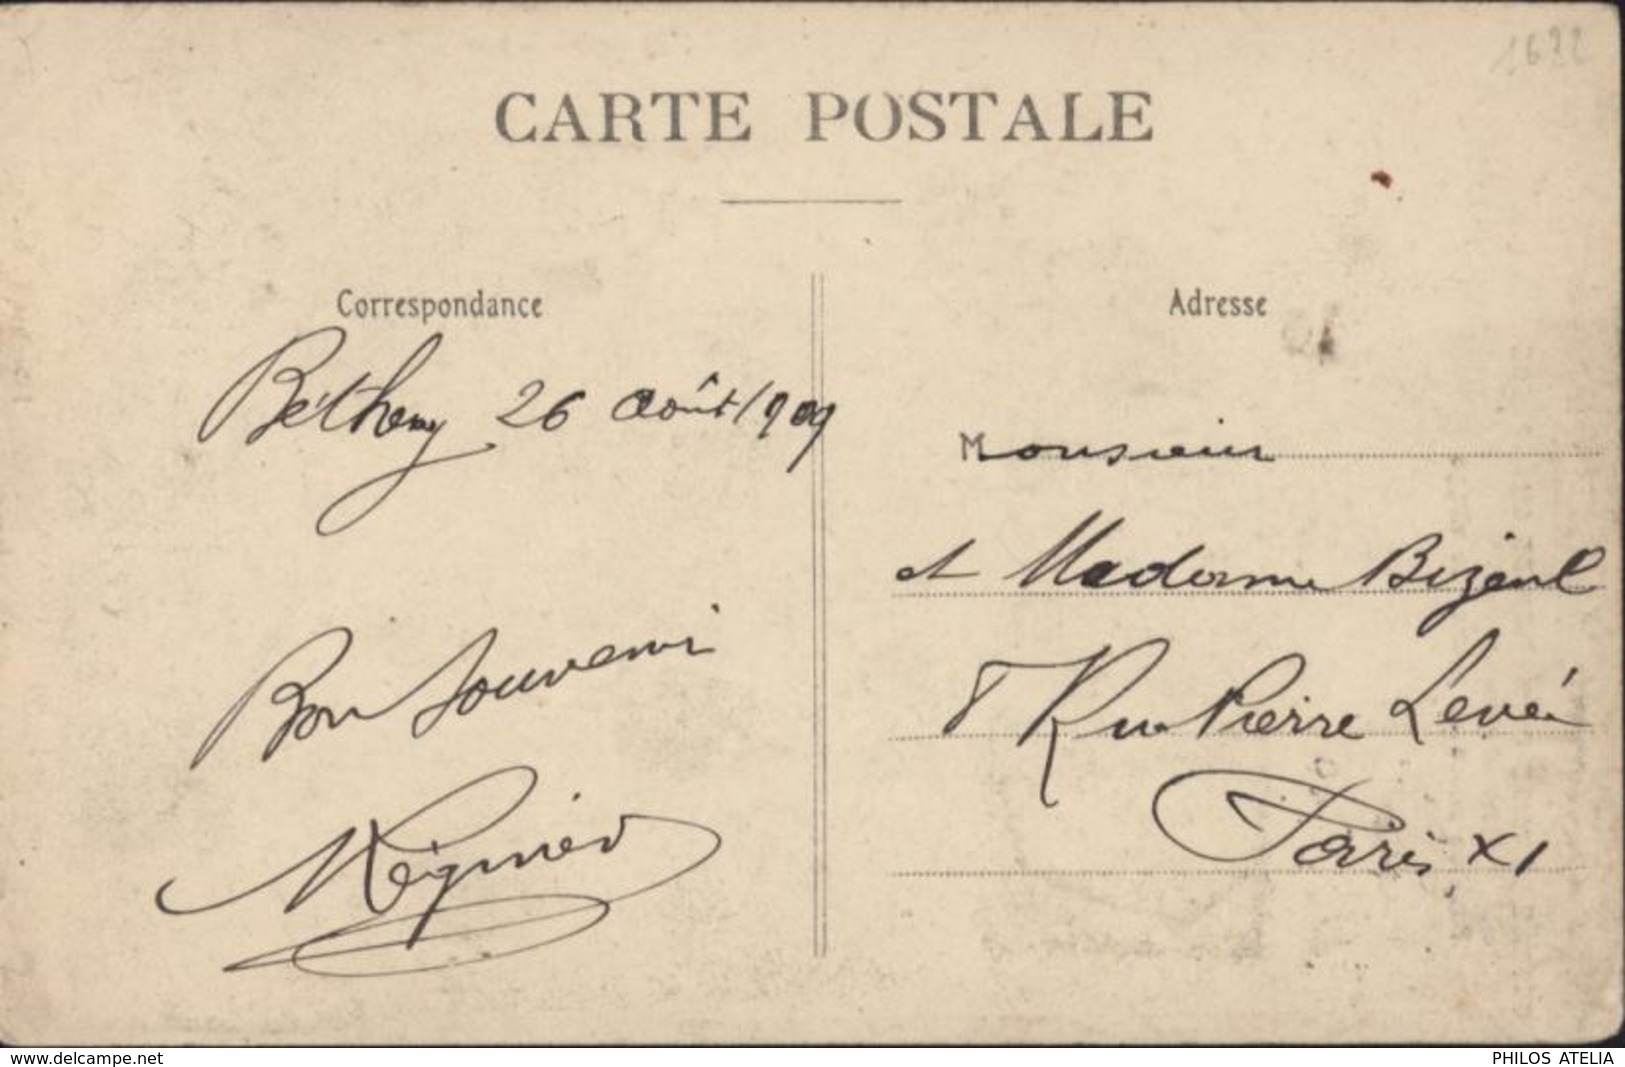 1622
CARTE POSTALE
Correspondance
Bétheny 26 Août 1909
Bon Souvenir
Régnier
Adresse
Monsieur
et Madame Bizeul
8 Rue Pierre Levée
Paris XI
www.delcampe.net
PHILOS ATELIA